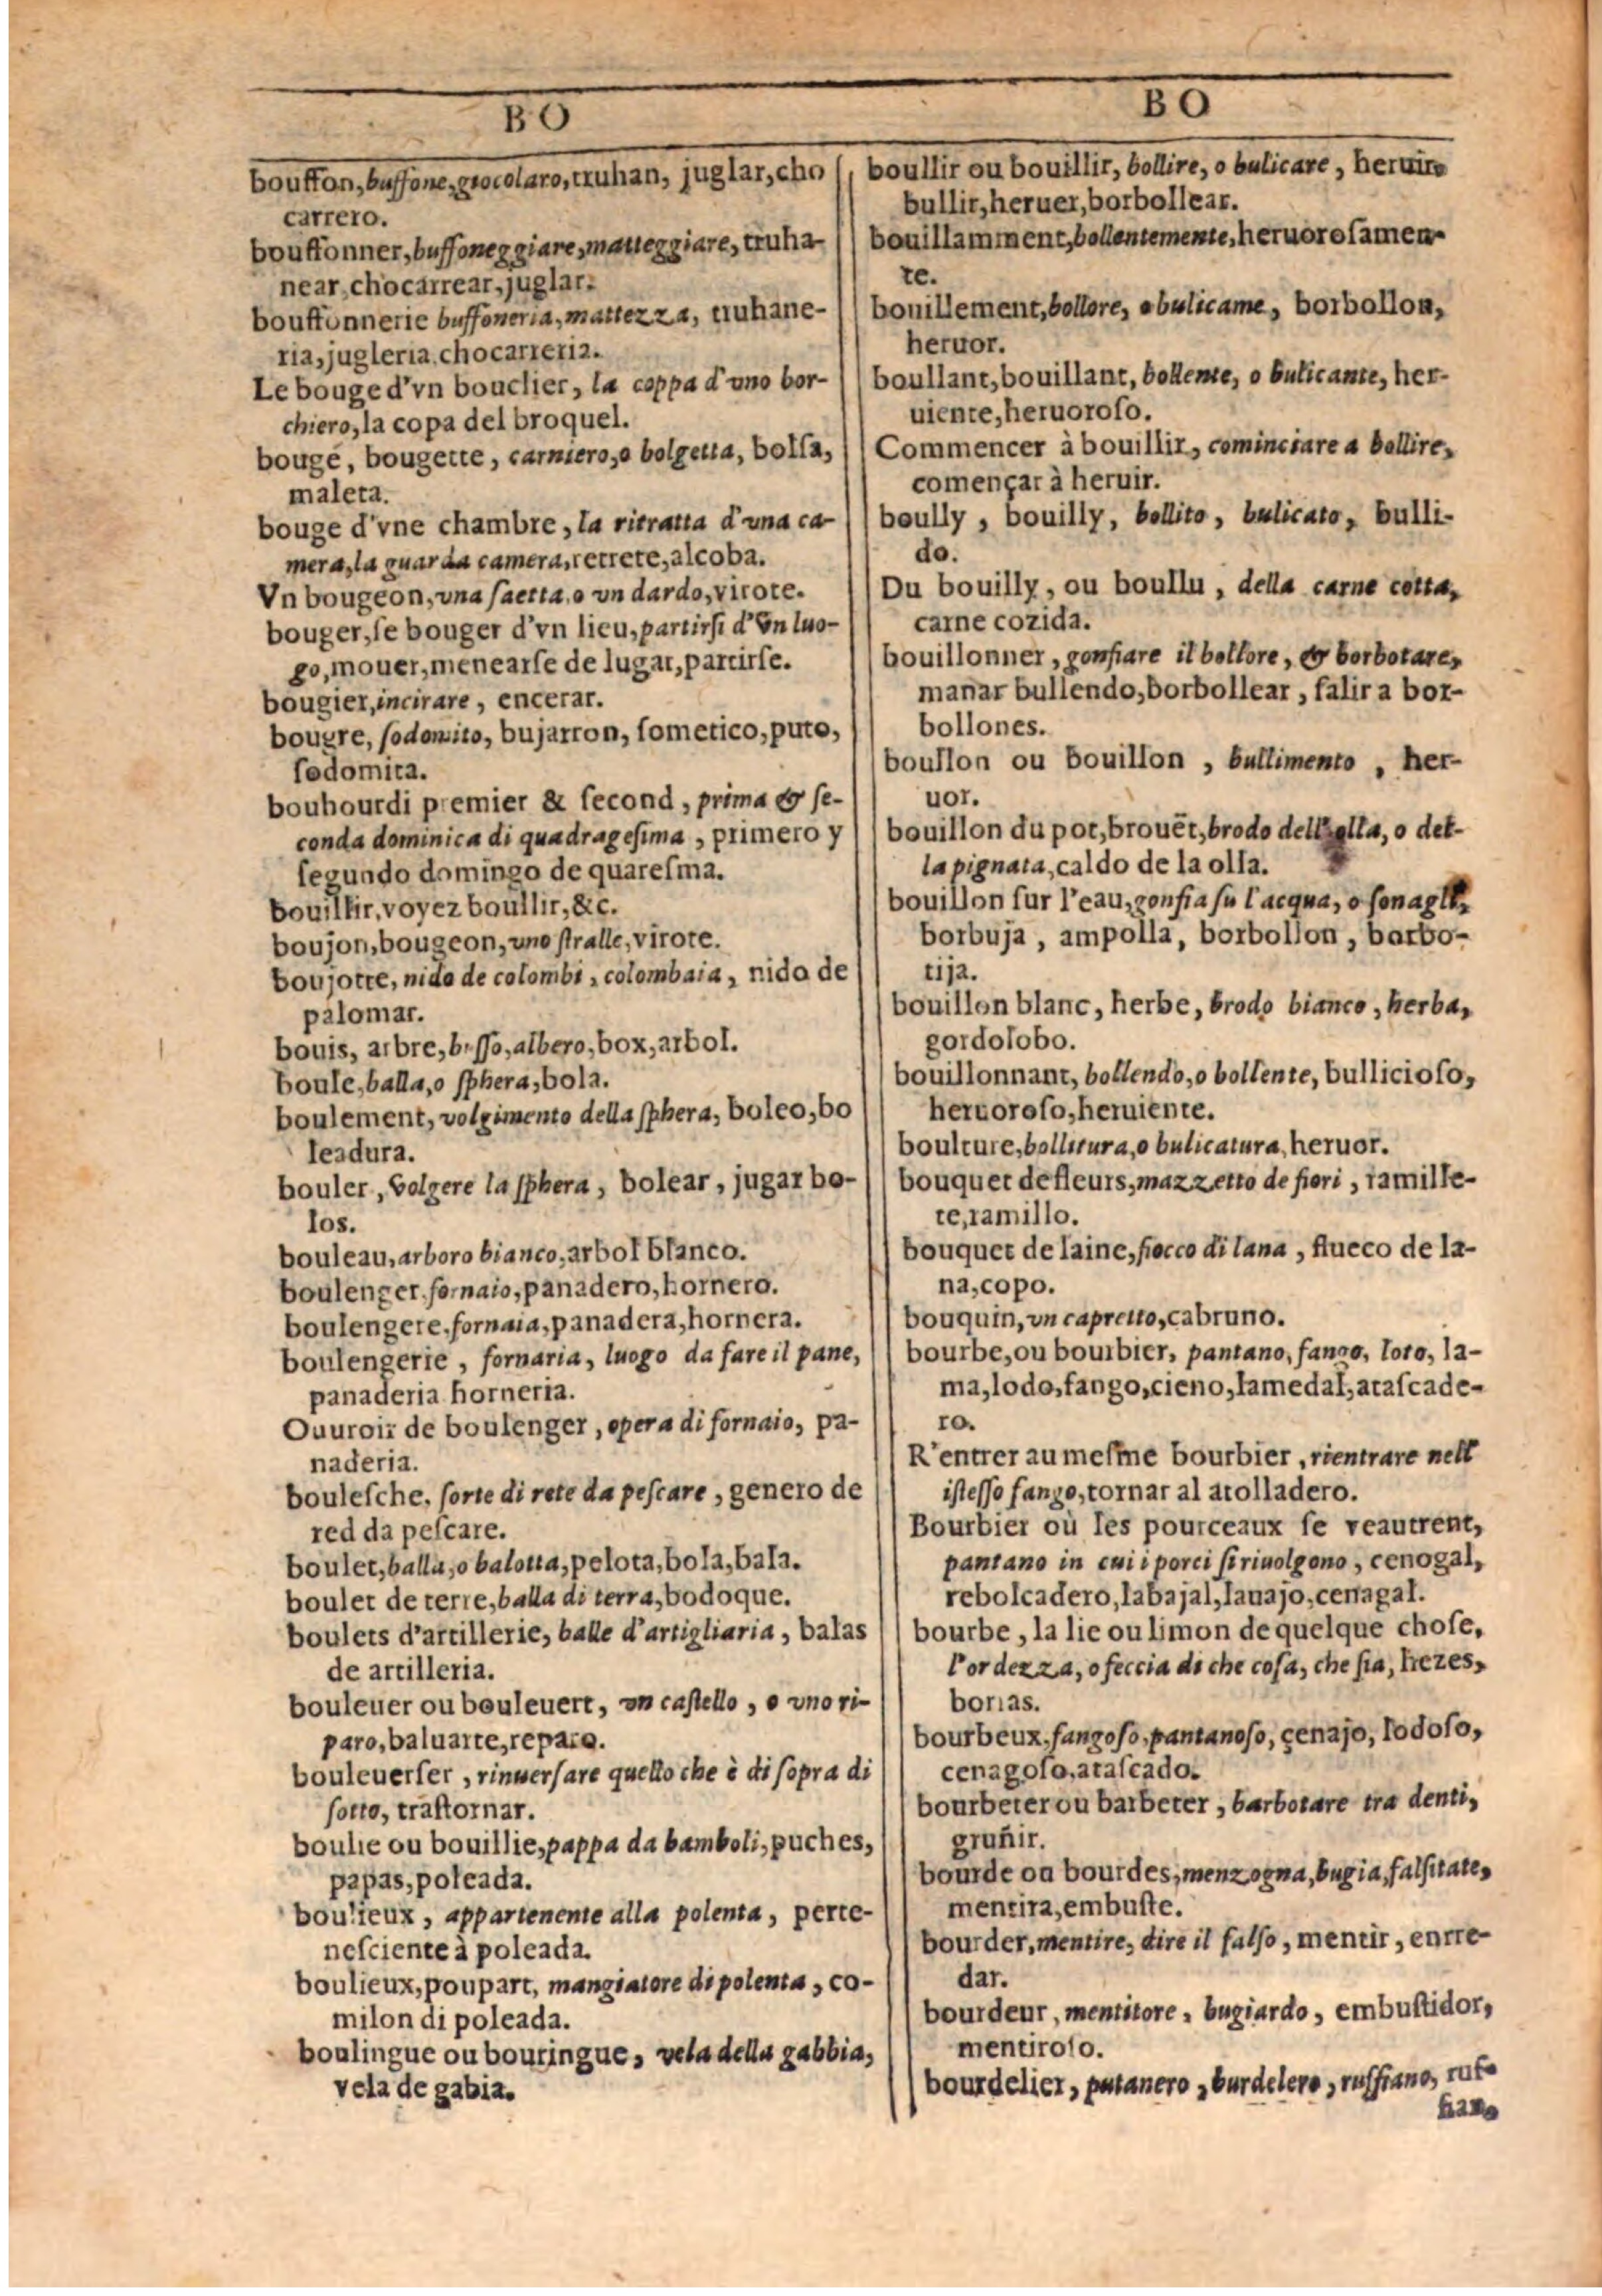 BO
bouffon, buffone, giocolaro, truhan, juglar, cho
carrero.
bouffonner, buffoneggiare, matteggiare, truha-
near, chocarrear, juglar.
bouffonnerie buffoneria, mattezza, truhane-
ria, jugleria, chocarreria.
Le bouge d'vn bouclier, la coppa d'vno bor-
chiero, la copa del broquel.
bouge, bougette, carniero, o bolgetta, bolſa,
maleta.
bouge d'vne chambre, la ritratta d'vna ca-
mera, la guarda camera, retrete, alcoba.
Vn bougeon, vna ſaetta, o vn dardo, virote.
bouger, ſe bouger d'vn lieu, partirſi d'vn luo-
go, mouer, menearſe de lugar, partirſe.
bougier, incirare, encerar.
bougre, ſodomito, bujarron, ſometico, puto,
ſodomita.
bouhourdi premier & ſecond, prima & ſe-
conda dominica di quadrageſima, primero y
ſegundo domingo de quareſma.
bouillir, voyez boullir, &c.
boujon, bougeon, vno ſtralle, virote.
boujotte, nido de colombi, colombaia, nido de
palomar.
bouis, arbre, boſſo, albero, box, arbol.
boule, balla, o ſphera, bola.
boulement, volgimento della ſphera, boleo, bo
leadura.
bouler, volgere la ſphera, bolear, jugar bo-
los.
bouleau, arboro bianco, arbol blanco.
boulenger, fornaio, panadero, hornero.
boulengere, fornaia, panadera, hornera.
boulengerie, fornaria, luogo da fare il pane,
panaderia horneria.
Ouuroir de boulenger, opera di fornaio, pa-
naderia.
bouleſche, ſorte di rete da peſcare, genero de
red da peſcare.
boulet, balla, o balotta, pelota, bola, bala.
boulet de terre, balla di terra, bodoque.
boulets d'artillerie, balle d'artigliaria, balas
de artilleria.
bouleuer ou bouleuert, vn caſtello, o vno ri-
paro, baluarte, reparo.
bouleuerſer, rinuerſare quello che è di ſopra di
ſotto, traſtornar.
boulie ou bouillie, pappa da bamboli, puches,
papas, poleada.
boulieux, appartenente alla polenta, perte-
neſciente à poleada.
boulieux, poupart, mangiatore di polenta, co-
milon di poleada.
boulingue ou bouringue, vela della gabbia,
vela de gabia.
BO
boullir ou bouillir, bollire, o bulicare, heruir,
bullir, heruer, borbollear.
bouillamment, bollentemente, heruoroſamen-
te.
bouillement, bollore, o bulicame, borbollon,
heruor.
boullant, bouillant, bollente, o bulicante, her-
uiente, heruoroſo.
Commencer à bouillir, cominciare a bollire,
començar à heruir.
boully, bouilly, bollito, bulicato, bulli-
do.
Du bouilly, ou boullu, della carne cotta,
carne cozida.
bouillonner, gonfiare il bollore, & borbotare,
manar bullendo, borbollear, ſalir a bor-
bollones.
boullon ou bouillon, bullimento, her-
uor.
bouillon du pot, brouët, brodo dell'olla, o del-
la pignata, caldo de la olla.
bouillon ſur l'eau, gonfia ſu l'acqua, o ſonagli,
borbuja, ampolla, borbollon, borbo-
tija.
bouillon blanc, herbe, brodo bianco, herba,
gordolobo.
bouillonnant, bollendo, o bollente, bullicioſo,
heruoroſo, heruiente.
boulture, bollitura, o bulicatura, heruor.
bouquet de fleurs, mazzetto de fiori, ramille-
te, ramillo.
bouquet de laine, fiocco di lana, flueco de la-
na, copo.
bouquin, vn capretto, cabruno.
bourbe, ou bourbier, pantano, fango, loto, la-
ma, lodo, fango, cieno, lamedal, ataſcade-
ro.
R'entrer au meſme bourbier, rientrare nell
iſteſſo fango, tornar al atolladero.
Bourbier où les pourceaux ſe veautrent,
pantano in cui i porci ſi riuolgono, cenogal,
rebolcadero, labajal, lauajo, cenagal.
bourbe, la lie ou limon de quelque choſe,
l'ordezza, o feccia di che coſa, che ſia, hezes,
borras.
bourbeux, fangoſo, pantanoſo, çenajo, lodoſo,
cenagoſo, ataſcado.
bourbeter ou barbeter, barbotare tra denti,
gruñir.
bourde ou bourdes, menzogna, bugia, falſitate,
mentira, embuſte.
bourder, mentire, dire il falſo, mentir, enrre-
dar.
bourdeur, mentitore, bugiardo, embuſtidor,
mentiroſo.
bourdelier, putanero, burdelero, ruffiano, ruf-
fian,